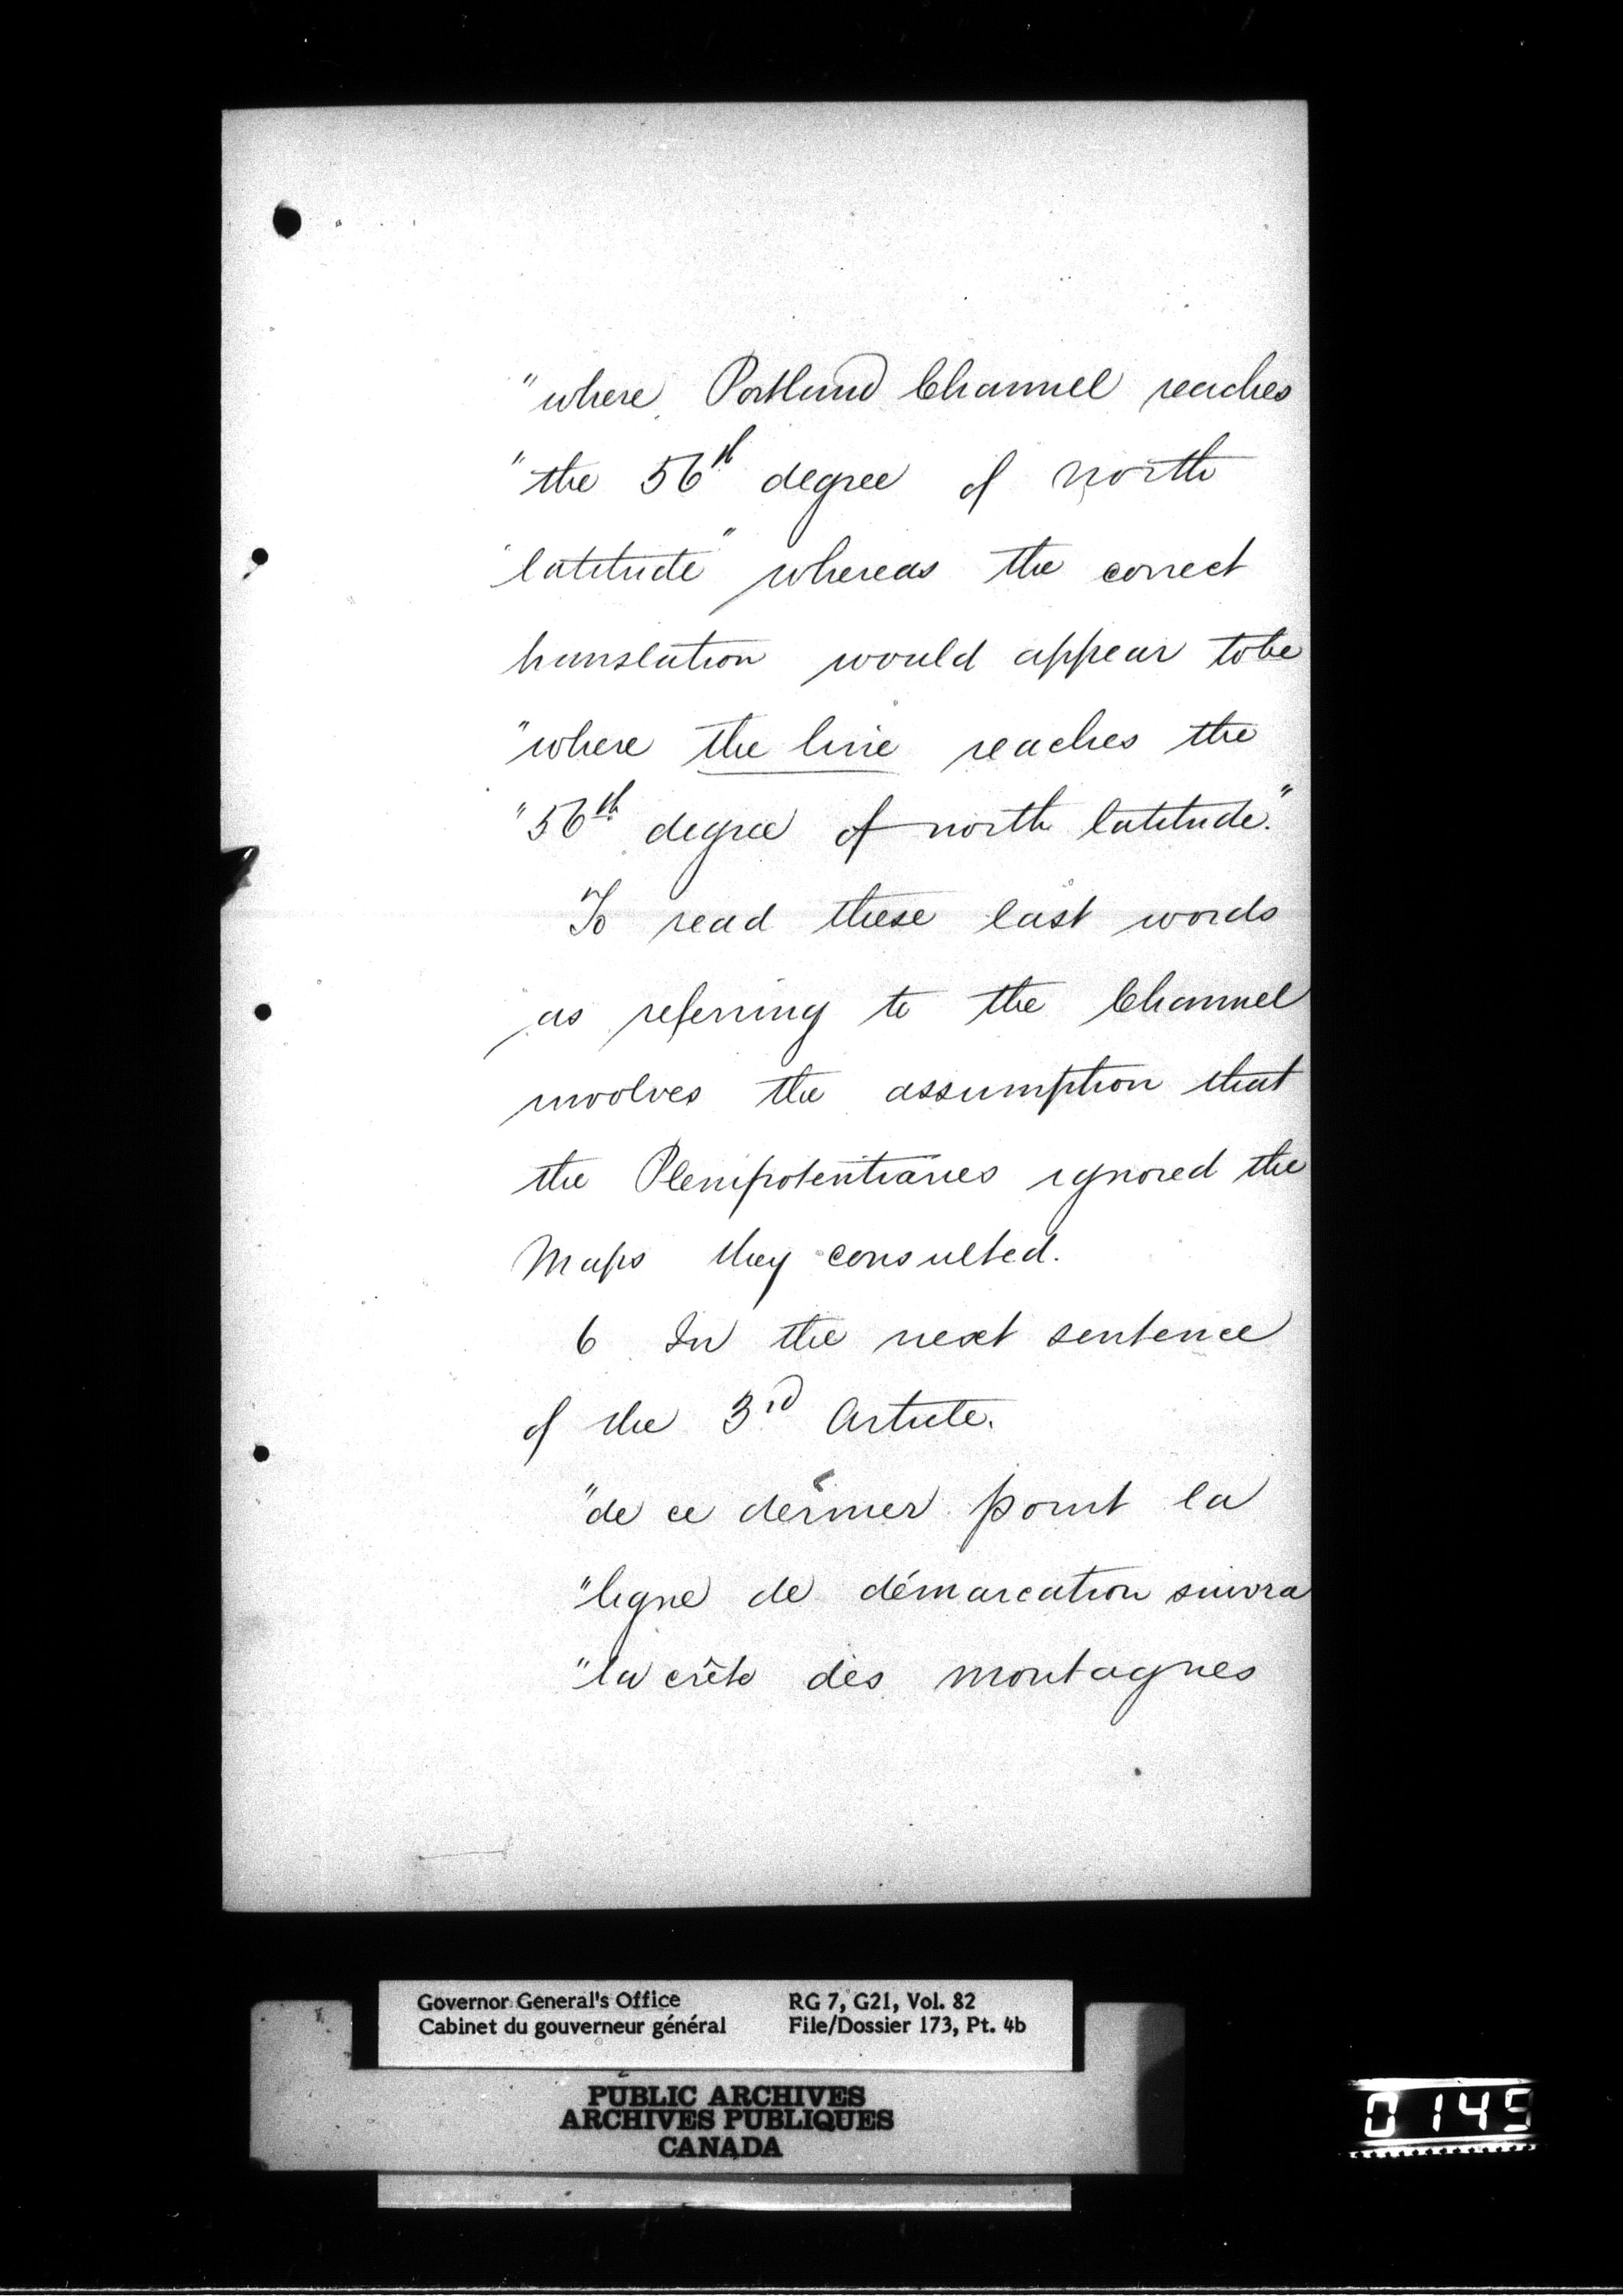 "where Portland Channel reaches
"the 56th degree of north
"latitude" whereas the correct
translation would appear to be
"where the line reaches the
"56th degree of north latitude."
To read these last words
as referring to the Channel
involves the assumption that
the Plenipotentiaries ignored the
Maps they consulted.
6 In the next sentence
of the 3rd Article.
"de ce dernier point la
"ligne de démarcation suivra
"la crête des montagnes
Governor General's Office
Cabinet du gouverneur général
RG 7, G21, Vol. 82
File/Dossier 173, Pt. 4b
PUBLIC ARCHIVES
ARCHIVES PUBLIQUES
CANADA
0145